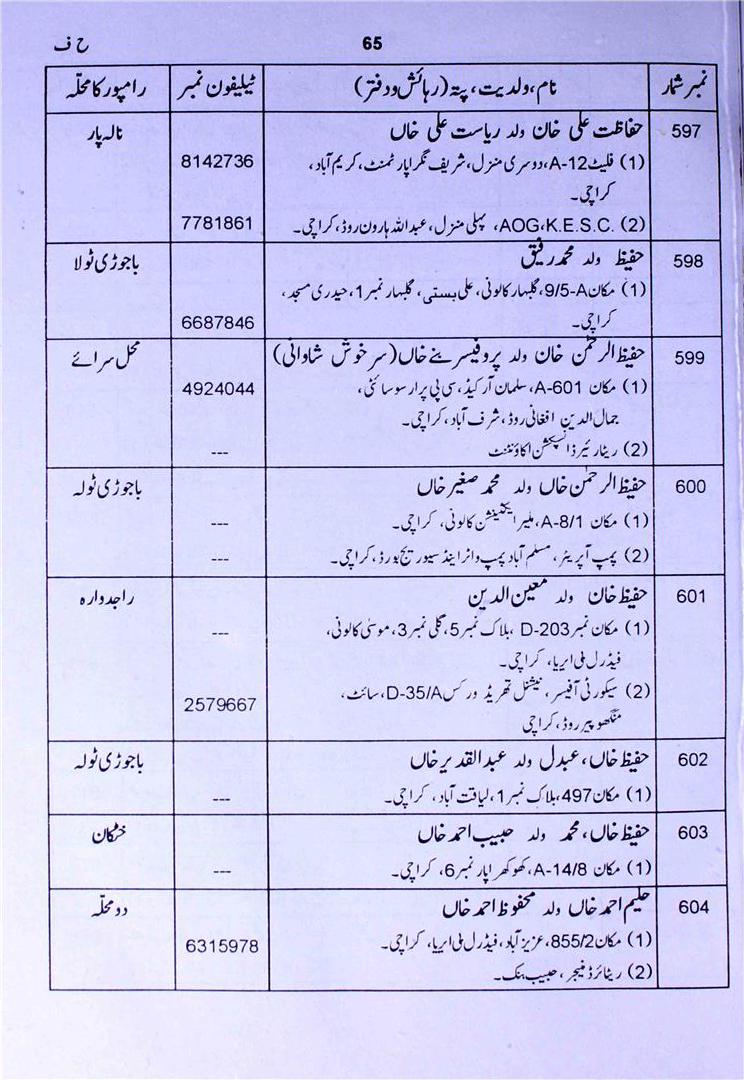 ح ف
65
نمبر شمار	نام، ولدیت، پتہ (رہائش و دفتر)	ٹیلیفون نمبر	رامپور کا محلّہ
597	حفاظت علی خان ولد ریاست علی خاں	نالہ پار
(1) فلیٹ A-12، دوسری منزل، شریف نگر اپارٹمنٹ، کریم آباد،	8142736
کراچی۔
(2) AOG، K.E.S.C.، پہلی منزل، عبداللہ ہارون روڈ، کراچی۔	7781861
598	حفیظ ولد محمد رفیق	باجوڑی ٹولا
(1) مکان 9/5-A، گلبہار کالونی، علی بستی، گلبہار نمبر 1، حیدری مسجد،
کراچی۔	6687846
599	حفیظ الرحمٰن خان ولد پروفیسر بنے خاں (سرخوش شاوانی)	محل سرائے
(1) مکان A-601، سلمان آرکیڈ، سی پی برار سوسائٹی،	4924044
جمال الدین افغانی روڈ، شرف آباد، کراچی۔
(2) ریٹائیرڈ انسپکشن اکاؤنٹنٹ	---
600	حفیظ الرحمٰن خاں ولد محمد صغیر خاں	باجوڑی ٹولہ
(1) مکان A-8/1، ملیر ایکٹینشن کالونی، کراچی۔	---
(2) پمپ آپریٹر، مسلم آباد پمپ واٹر اینڈ سیوریج بورڈ، کراچی۔	---
601	حفیظ خان ولد معین الدین	راجدوارہ
(1) مکان نمبر D-203، بلاک نمبر 5، گلی نمبر 3، موسیٰ کالونی،	---
فیڈرل بی ایریا، کراچی۔
(2) سیکورٹی آفیسر، نیشنل تھریڈ ورکس D-35/A، سائٹ،	2579667
منگھو پیر روڈ، کراچی
602	حفیظ خاں، عبدل ولد عبدالقدیر خاں	باجوڑی ٹولہ
(1) مکان 497، بلاک نمبر 1، لیاقت آباد، کراچی۔	---
603	حفیظ خاں، محمد ولد حبیب احمد خاں	خٹکان
(1) مکان A-14/8، کھوکھراپار نمبر 6، کراچی۔	---
604	حلیم احمد خاں ولد محفوظ احمد خاں	دو محلّہ
(1) مکان 855/2، عزیز آباد، فیڈرل بی ایریا، کراچی۔	6315978
(2) ریٹائرڈ منیجر، حبیب بنک۔